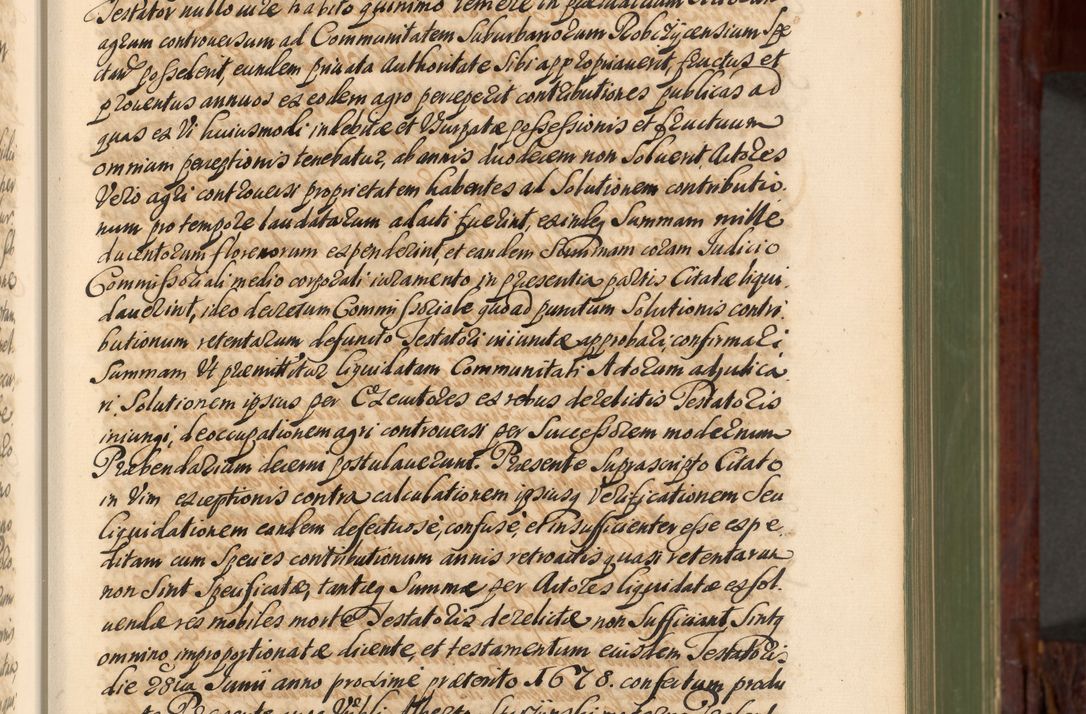 Testator nullo iure habito quinimo temere in
agrum controversum ad Communitatem Suburbanorum Pobrzyzensium Spe
ctan possederit, eundem privata authoritate sibi appropriaverit, fructus et
proventus annuos ex eodem agro perceperit contributiones publicas ad
quas ex vi huiusmodi indebitæ et usurpatæ possessionis et fructuum
omnium perceptionis tenebatur, ab annis duodecem non solverit Actores
Vero agri controversi proprietatem habentes ad Solutionem contributio
num pro tempore laudatarum adacti fuerint, exindeq Summam mille
ducentorum florenorum expenderint, et eandem Summam coram Judicio
Commissoriali medio corporali iuramento in præsentia partis Citatæ liqui
daverint, ideo decretum Commissoriale quoad punctum Solutionis contri
butionum retentarum defuncto Testatori iniunctæ approbari, confirmari
Summam Ut præmittitur liquidatam Communitati Actorum adjudica
ri. Solutionem ipsius per Executores ex rebus derelictis Testatoris
iniungi, deoccupationem agri controversi per Successorem modernum
Præbendarium decerni postulaverunt. Præsente Suprascripto Citato
in Vim exceptionis contra calculationem ipsiusq Verificationem Seu
liquidationem eandem defectuose, confuse, et insufficienter esse expe
ditam cum Species contributionum annis retroactis quasi retentarum
non Sint Specificatæ, tantæq Summæ per Actores liquidatæ exsol
uendæ res mobiles morte Testatoris derelictæ non Sufficiant Sintq
omnino improportionatæ dicente, et testamentum eiusdem Testatoris
die 28va Junii anno proxime præterito 1678. confectum produ